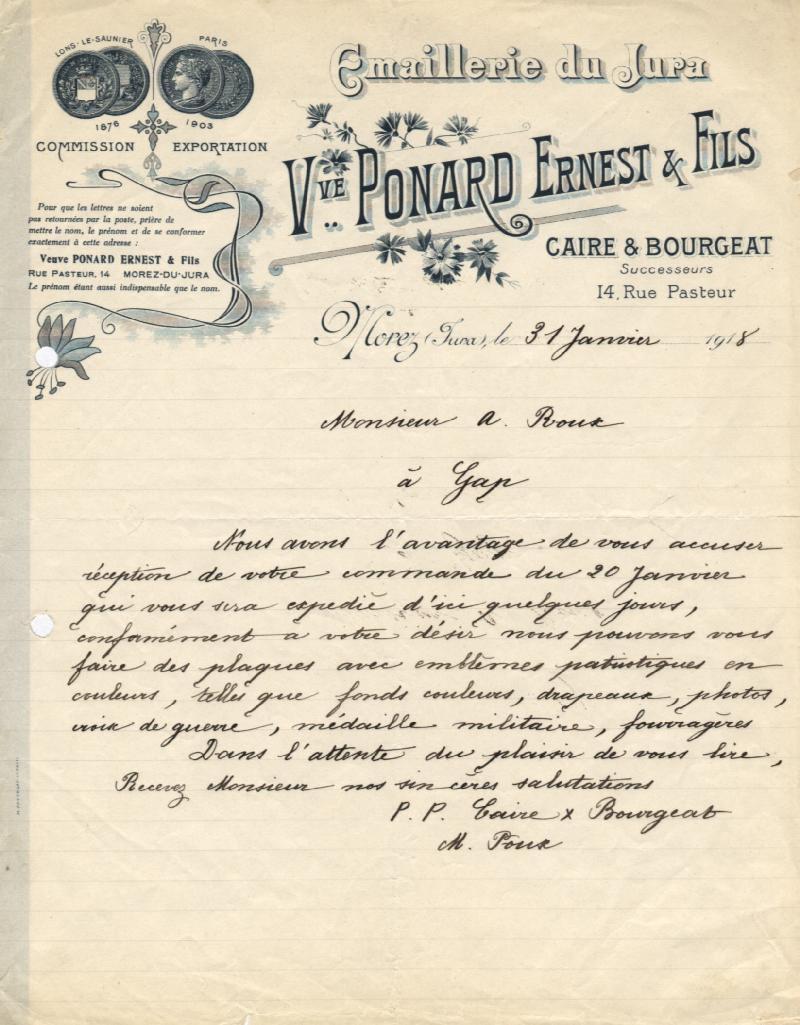 LONS-LE-SAUNIER PARIS
1876 1903
COMMISSION EXPORTATION
Emaillerie du Jura
Vve PONARD ERNEST & FILS
CAIRE & BOURGEAT
Successeurs
14, Rue Pasteur
Pour que les lettres ne soient
pas retournées par la poste, prière de
mettre le nom, le prénom et de se conformer
exactement à cette adresse :
Veuve PONARD ERNEST & Fils
RUE PASTEUR, 14 MOREZ-DU-JURA
Le prénom étant aussi indispensable que le nom.
Morez (Jura), le 31 Janvier 1918
Monsieur A. Roux
à Gap
Nous avons l'avantage de vous accuser
réception de votre commande du 20 Janvier
qui vous sera expedié d'ici quelques jours,
conformément a votre désir nous pouvons vous
faire des plaques avec emblèmes patriotiques en
couleurs, telles que fonds couleurs, drapeaux, photos,
croix de guerre, médaille militaire, fourragères
Dans l'attente du plaisir de vous lire,
Recevez Monsieur nos sincères salutations
P. P. Caire x Bourgeat
M. Poux